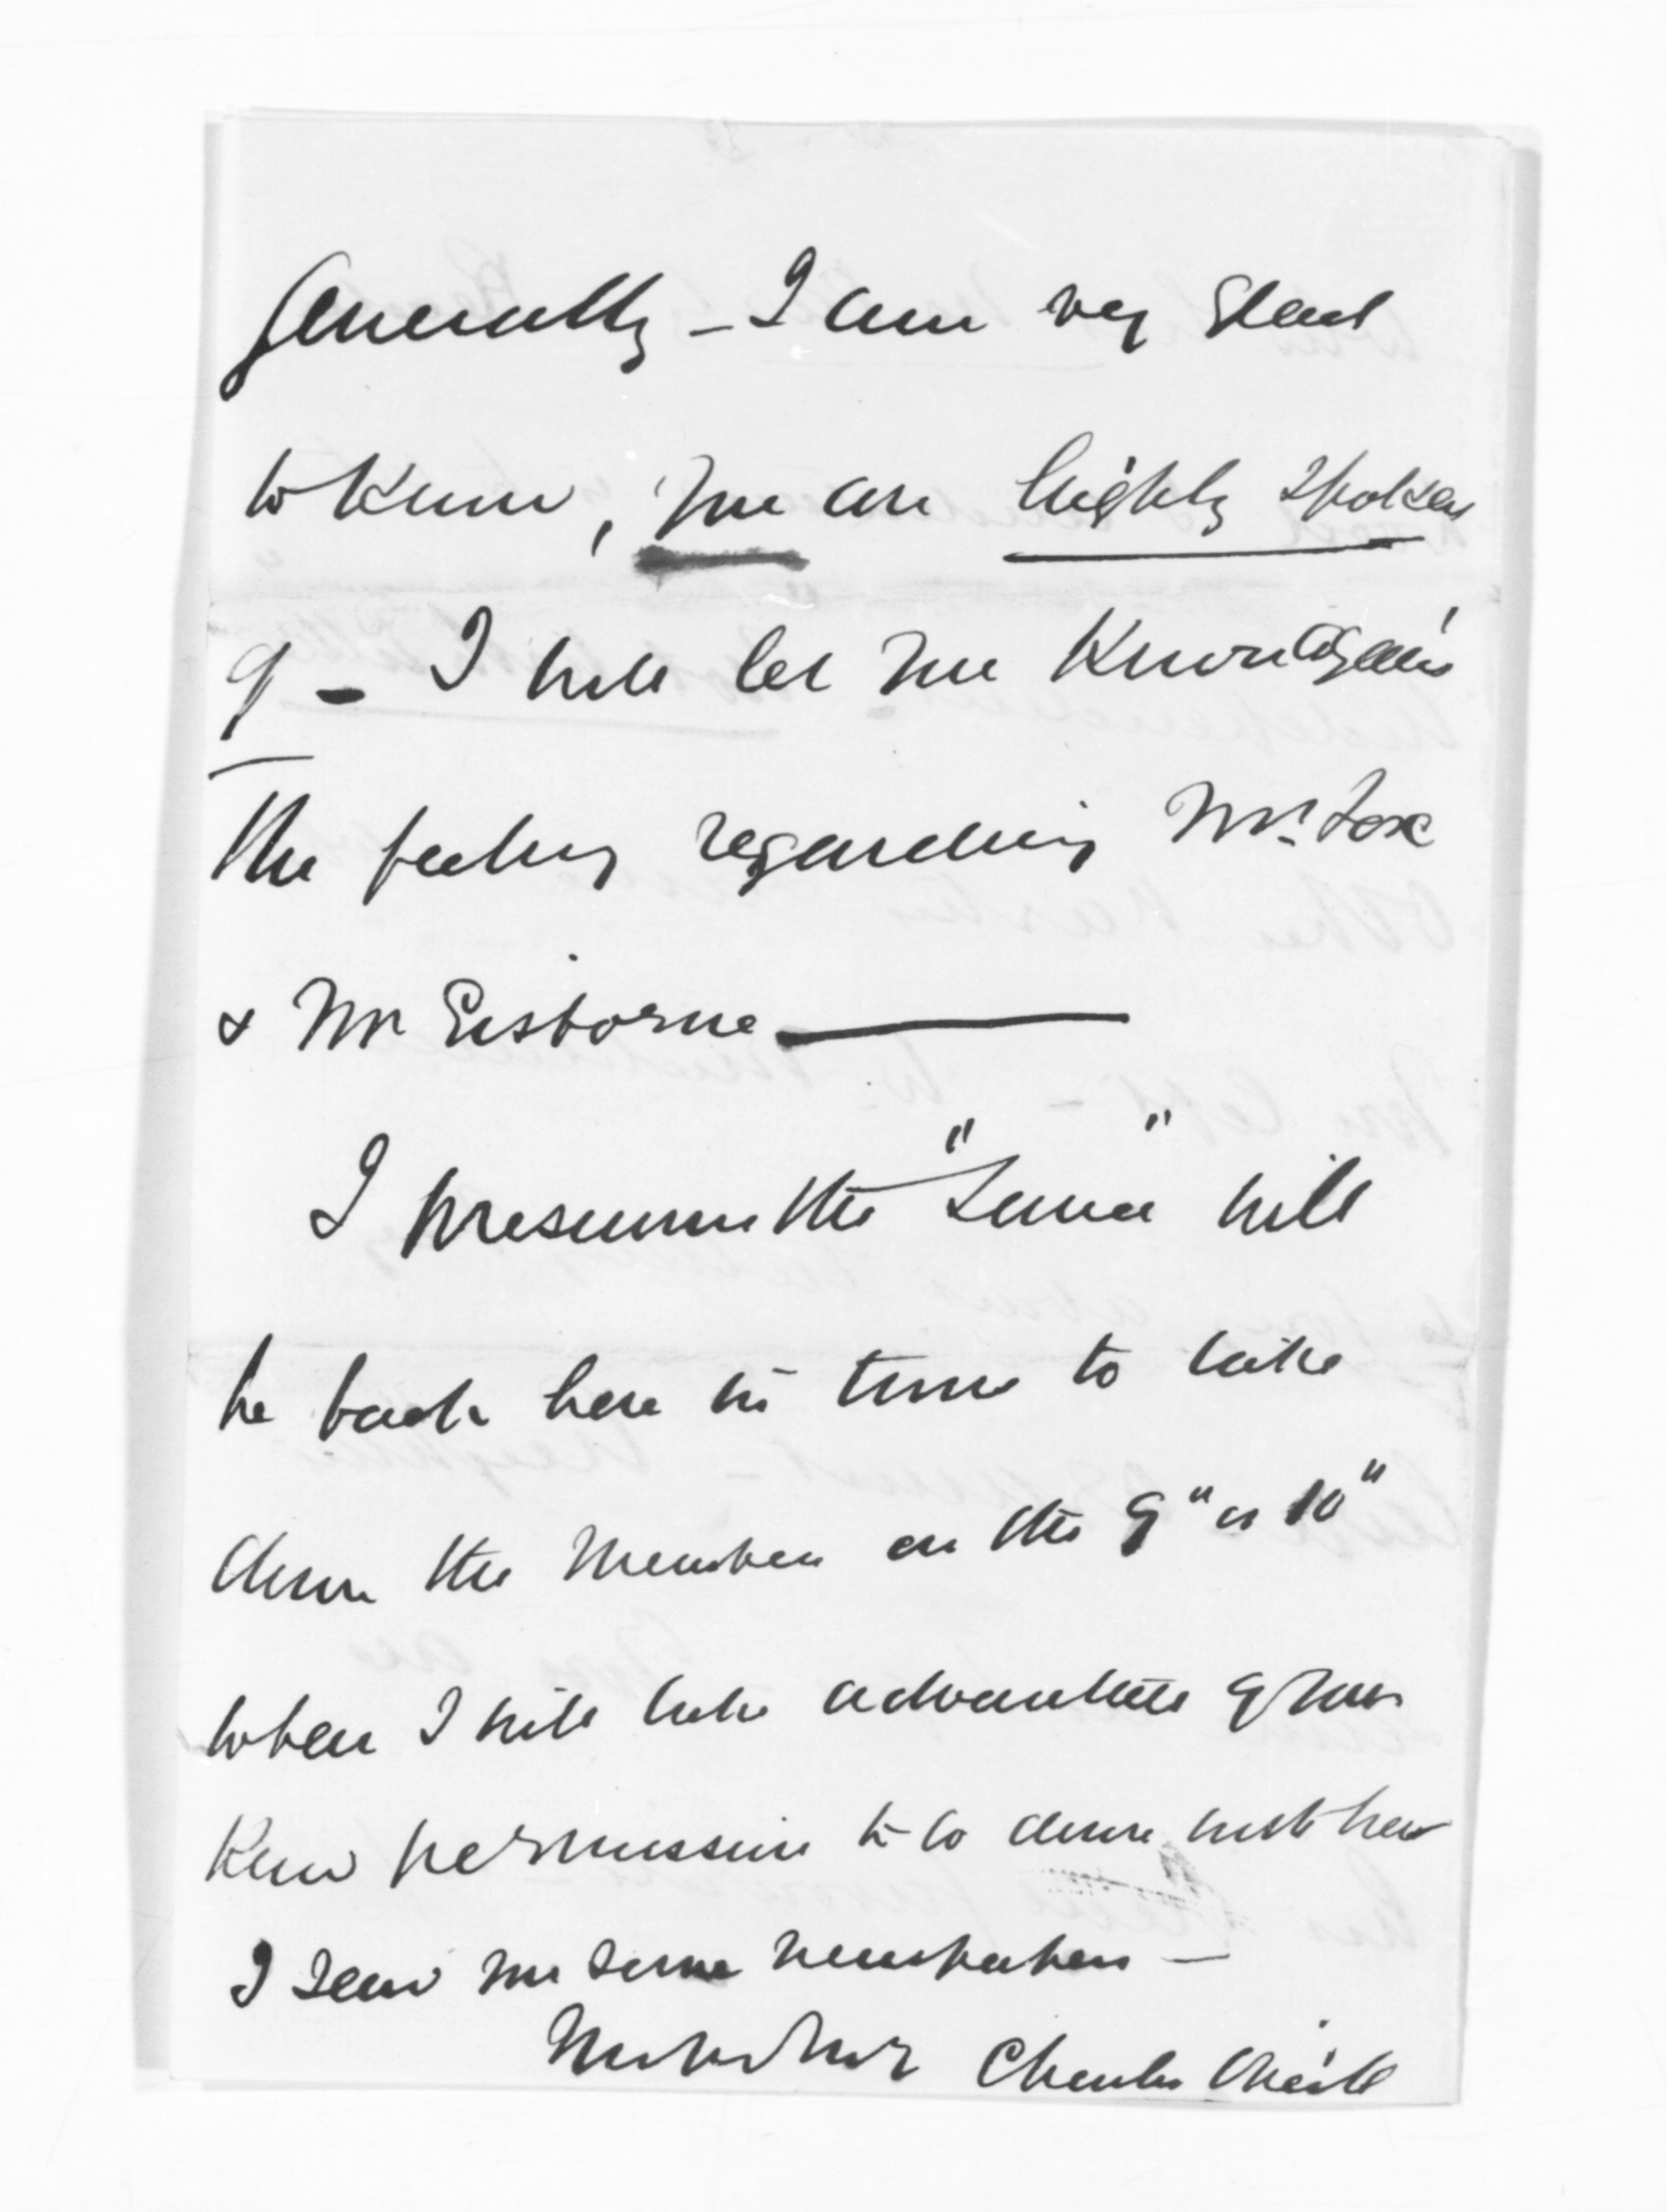 Generally - I am very glad
to know, you are highly spoken
of - I will let you know again
the feeling regarding Mr. Fox
& Mr Gisborne
I presume the "Luna" will
be back here in time to take
down the Members on the 9" or 10"
when I will take advantage of your
kind permission to go down with her
I send you some newspapers -
Charles